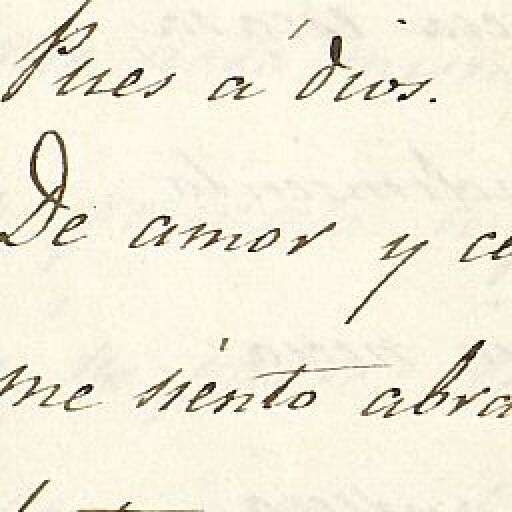 Pues á dios.
De amor y ce
me siento abra